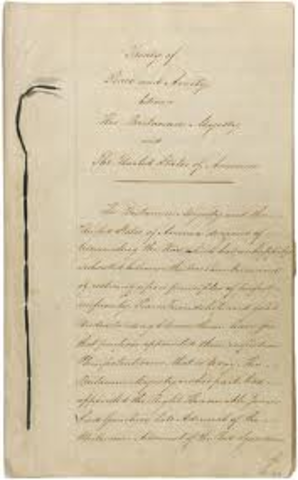 Treaty of
Peace and Amity
between
His Britannic Majesty
and
The United States of America
His Britannic Majesty and the
United States of America desirous of
terminating the War which has unhappily
subsisted between the two Countries, and
of restoring upon principles of perfect
reciprocity, Peace, Friendship, and good
Understanding between them, have for
that purpose appointed their respective
Plenipotentiaries, that is to say, His
Britannic Majesty on his part has
appointed the Right Honourable James
Lord Gambier, late Admiral of the
White now Admiral of the Red Squadron
of